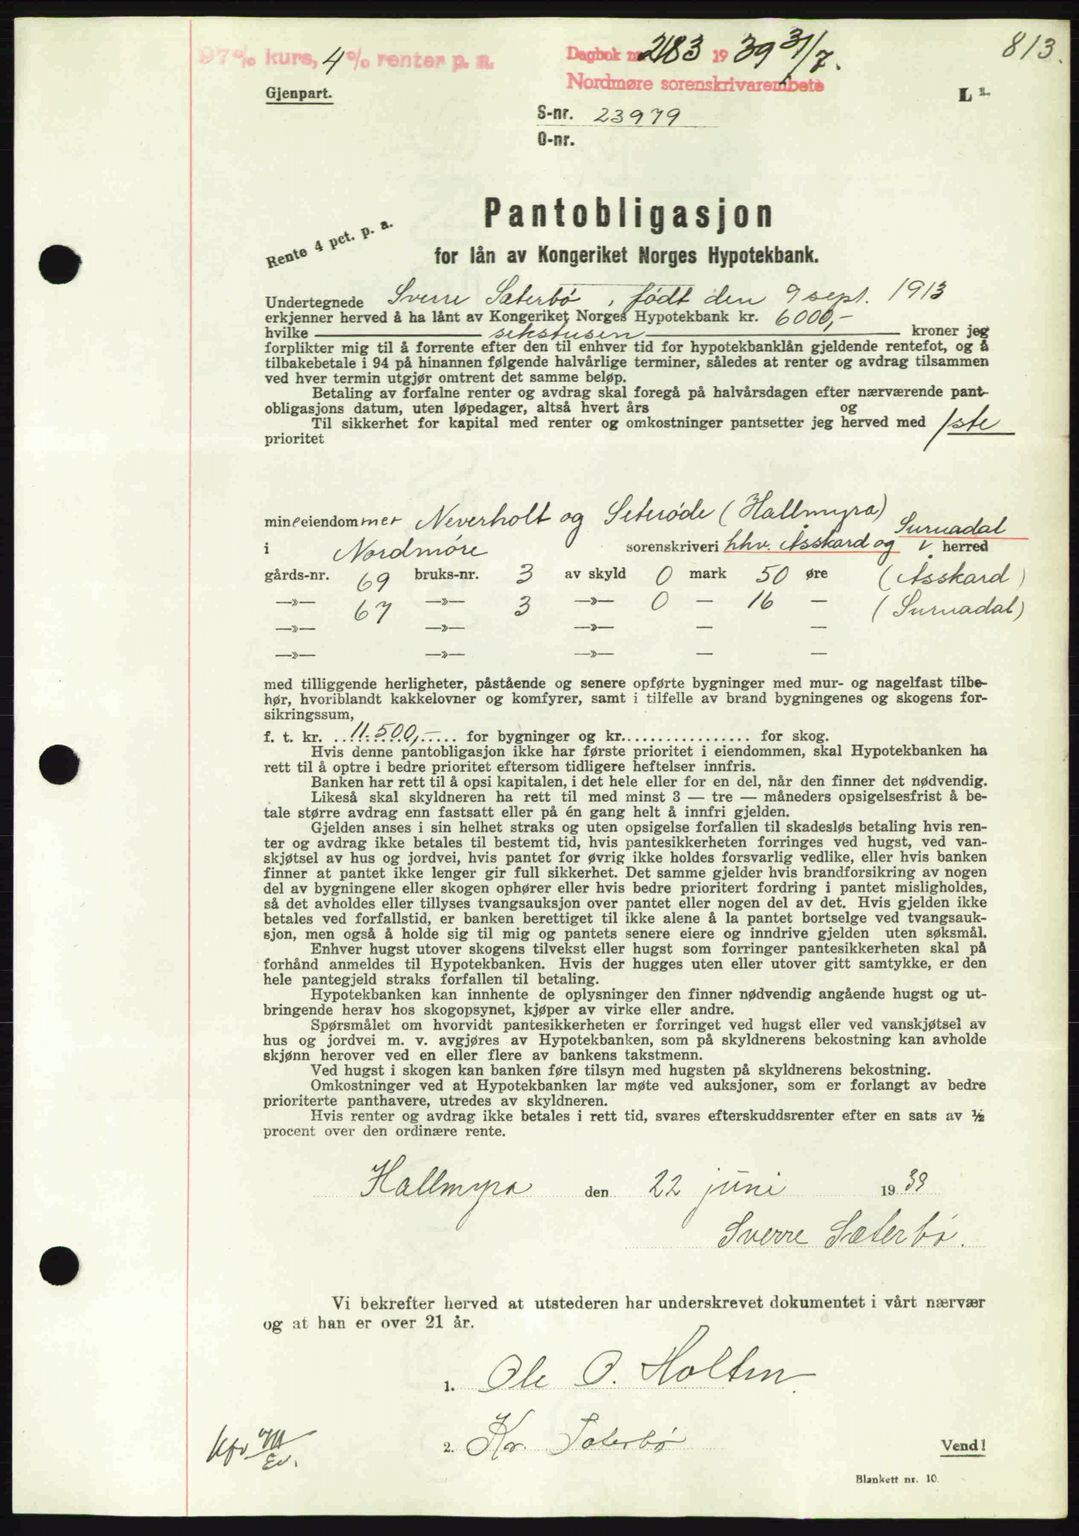 97% kurs, 4% renter p. a.
Dagbok nr. 2183 1939 31/7.
813.
Nordmøre sorenskrivarembete
Gjenpart.
L
S-nr. 23979
O-nr.
Pantobligasjon
Rente 4 pct. p. a.
for lån av Kongeriket Norges Hypotekbank.
Undertegnede Sverre Sæterbø, født den 9 sept. 1913
erkjenner herved å ha lånt av Kongeriket Norges Hypotekbank kr. 6000,-
hvilke sekstusen kroner jeg
forplikter mig til å forrente efter den til enhver tid for hypotekbanklån gjeldende rentefot, og å
tilbakebetale i 94 på hinannen følgende halvårlige terminer, således at renter og avdrag tilsammen
ved hver termin utgjør omtrent det samme beløp.
Betaling av forfalne renter og avdrag skal foregå på halvårsdagen efter nærværende pant-
obligasjons datum, uten løpedager, altså hvert års og
Til sikkerhet for kapital med renter og omkostninger pantsetter jeg herved med 1ste
prioritet
mine eiendommer Neverholt og Seterøde (Hallmyra)
Surnadal
i Nordmøre sorenskriveri hhv. Åsskard og i herred
gårds-nr. 69 bruks-nr. 3 av skyld 0 mark 50 øre (Åsskard)
—»— 67 —»— 3 —»— 0 — 16 — (Surnadal)
—»— —»— —»— — —
—»— —»— —»— — —
med tilliggende herligheter, påstående og senere opførte bygninger med mur- og nagelfast tilbe-
hør, hvoriblandt kakkelovner og komfyrer, samt i tilfelle av brand bygningenes og skogens for-
sikringssum,
f. t. kr. 11.500,- for bygninger og kr. for skog.
Hvis denne pantobligasjon ikke har første prioritet i eiendommen, skal Hypotekbanken ha
rett til å optre i bedre prioritet eftersom tidligere heftelser innfris.
Banken har rett til å opsi kapitalen, i det hele eller for en del, når den finner det nødvendig.
Likeså skal skyldneren ha rett til med minst 3 — tre — måneders opsigelsesfrist å be-
tale større avdrag enn fastsatt eller på én gang helt å innfri gjelden.
Gjelden anses i sin helhet straks og uten opsigelse forfallen til skadesløs betaling hvis ren-
ter og avdrag ikke betales til bestemt tid, hvis pantesikkerheten forringes ved hugst, ved van-
skjøtsel av hus og jordvei, hvis pantet for øvrig ikke holdes forsvarlig vedlike, eller hvis banken
finner at pantet ikke lenger gir full sikkerhet. Det samme gjelder hvis brandforsikring av nogen
del av bygningene eller skogen ophører eller hvis bedre prioritert fordring i pantet misligholdes,
så det avholdes eller tillyses tvangsauksjon over pantet eller nogen del av det. Hvis gjelden ikke
betales ved forfallstid, er banken berettiget til ikke alene å la pantet bortselge ved tvangsauk-
sjon, men også å holde sig til mig og pantets senere eiere og inndrive gjelden uten søksmål.
Enhver hugst utover skogens tilvekst eller hugst som forringer pantesikkerheten skal på
forhånd anmeldes til Hypotekbanken. Hvis der hugges uten eller utover gitt samtykke, er den
hele pantegjeld straks forfallen til betaling.
Hypotekbanken kan innhente de oplysninger den finner nødvendig angående hugst og ut-
bringende herav hos skogopsynet, kjøper av virke eller andre.
Spørsmålet om hvorvidt pantesikkerheten er forringet ved hugst eller ved vanskjøtsel av
hus og jordvei m. v. avgjøres av Hypotekbanken, som på skyldnerens bekostning kan avholde
skjønn herover ved en eller flere av bankens takstmenn.
Ved hugst i skogen kan banken føre tilsyn med hugsten på skyldnerens bekostning.
Omkostninger ved at Hypotekbanken lar møte ved auksjoner, som er forlangt av bedre
prioriterte panthavere, utredes av skyldneren.
Hvis renter og avdrag ikke betales i rett tid, svares efterskuddsrenter efter en sats av ½
procent over den ordinære rente.
Hallmyra den 22 juni 1939
Sverre Sæterbø.
Vi bekrefter herved at utstederen har underskrevet dokumentet i vårt nærvær
og at han er over 21 år.
1. Ole O. Holten
2. Kr. Sæterbø
Vend!
Blankett nr. 10.